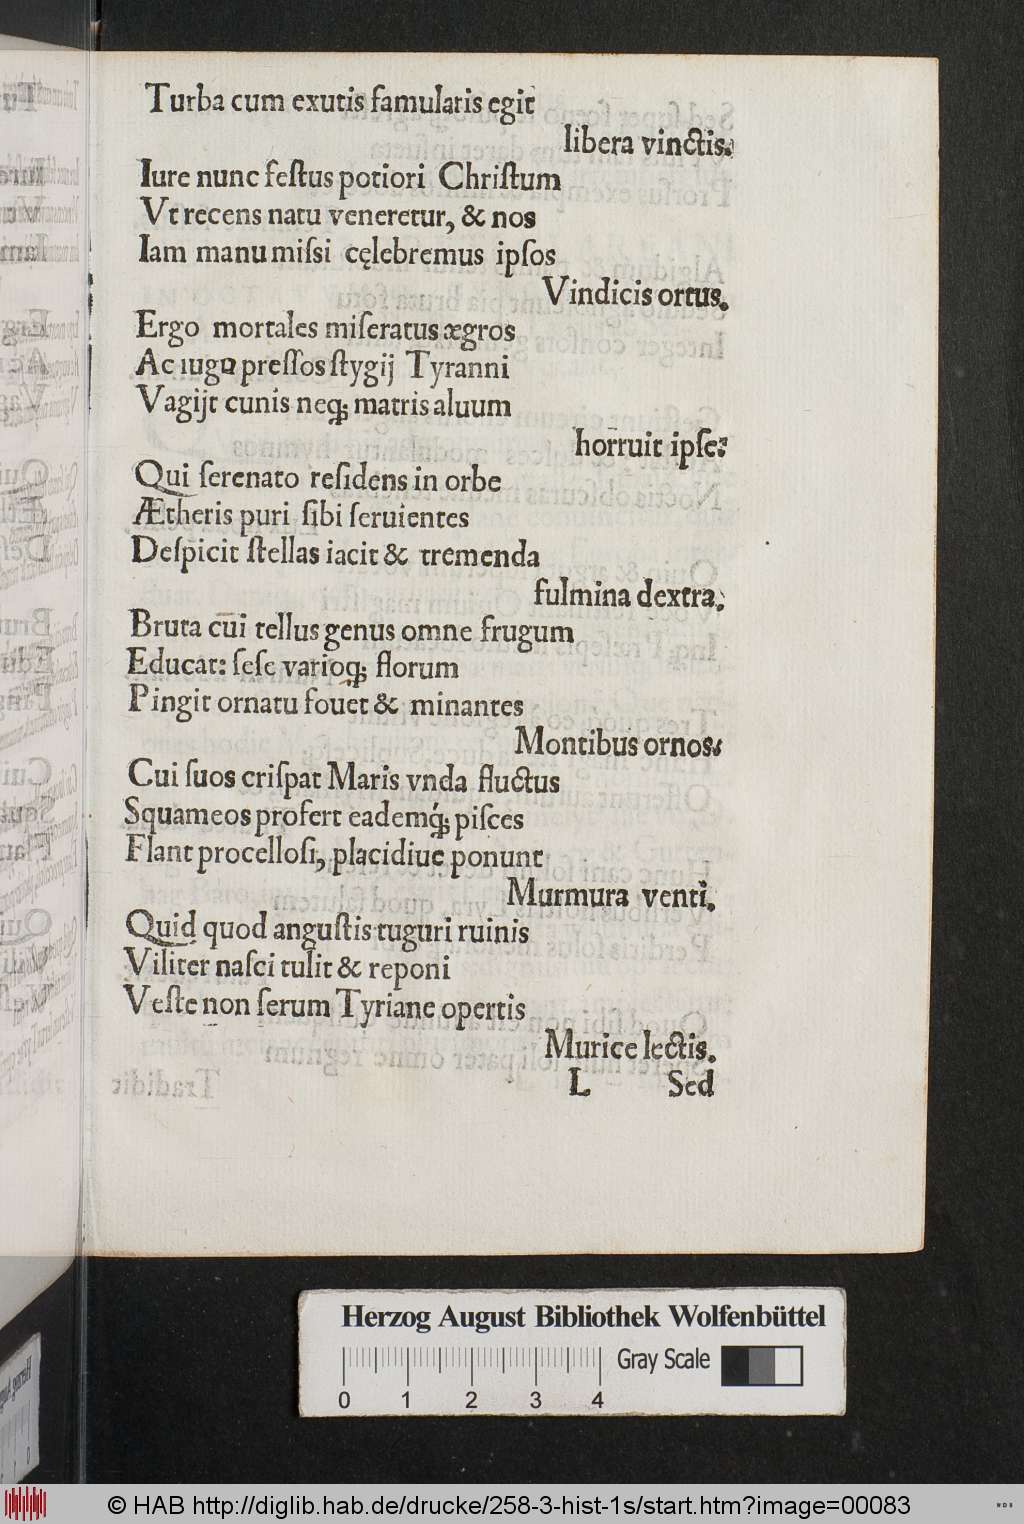 Turba cum exutis famularis egit
libera vinctis.
Iure nunc feſtus potiori Chriſtum
Vt recens natu veneretur, & nos
Iam manu miſsi cęlebremus ipſos
Vindicis ortus.
Ergo mortales miſeratus ægros
Ac iugo preſſos ſtygij Tyranni
Vagijt cunis neq; matris aluum
horruit ipſe?
Qui ſerenato reſidens in orbe
Ætheris puri ſibi ſeruientes
Deſpicit ſtellas iacit & tremenda
fulmina dextra.
Bruta cui tellus genus omne frugum
Educat: ſeſe varioq; florum
Pingit ornatu fouet & minantes
Montibus ornos.
Cui ſuos criſpat Maris vnda fluctus
Squameos profert eademq́; piſces
Flant procelloſi, placidiue ponunt
Murmura venti.
Quid quod anguſtis tuguri ruinis
Viliter naſci tulit & reponi
Veſte non ſerum Tyriane opertis
Murice lectis.
L Sed
Tradidit
Herzog August Bibliothek Wolfenbüttel
Gray Scale
0 1 2 3 4
© HAB http://diglib.hab.de/drucke/258-3-hist-1s/start.htm?image=00083